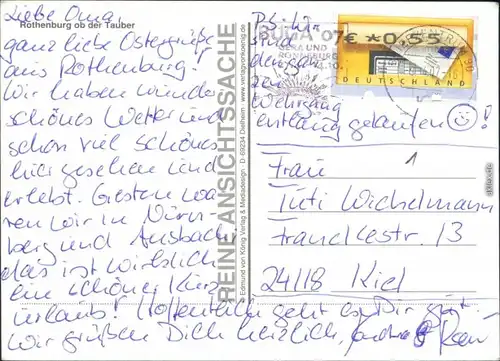 Liebe Oma
Rothenburg ob der Tauber
ganz liebe Ostergrüße
aus Rothenburg!
Wir haben wunder
schönes Wetter und
schon viel schönes
hier gesehen und
erlebt. Gestern wa
ren wir in Nürn-
berg und Ansbach
das ist wirklich
ein schöner Kurz
urlaub! Hoffentlich geht es Dir gut
wir grüßen Dich herzlich,
REINE ANSICHTSSACHE
© Edmund von König Verlag & Mediadesign · D-69234 Dielheim · www.verlagvonkoenig.de
PS:
den ganzen
Wehrgang
entlang gelaufen ☺!
BUGA 07
GERA UND
RONNEBURG
€ *0.55
DEUTSCHLAND
BRIEFZENTRUM 90
1
Frau
Tuti Wichelmann
Franckestr. 13
24118 Kiel